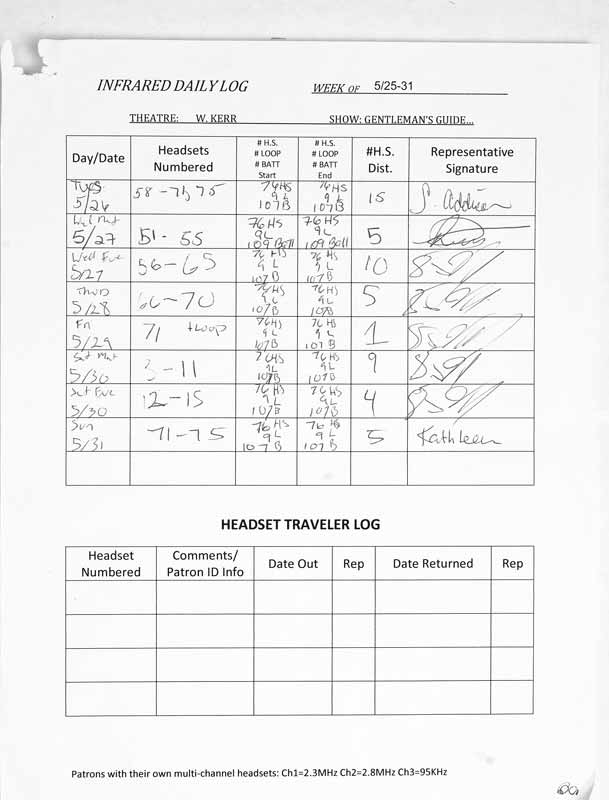 INFRARED DAILY LOG WEEK OF 5/25-31
THEATRE: W. KERR SHOW: GENTLEMAN'S GUIDE...
Day/Date Headsets Numbered # H.S. # LOOP # BATT Start # H.S. # LOOP # BATT End #H.S. Dist. Representative Signature
Tues 5/26 58-71, 75 76HS 9L 107B 76HS 9L 107B 15 S. Addison
Wed Mat 5/27 51-55 76HS 9L 109 Batt 76HS 9L 109 Batt 5
Wed Eve 5/27 56-65 76 HS 9 L 107B 76 HS 9L 107B 10
Thur 5/28 66-70 76HS 9L 107B 76HS 9L 107B 5
Fri 5/29 71 +LOOP 76HS 9L 107B 76HS 9L 107B 1
Sat Mat 5/30 3-11 76HS 9L 107B 76HS 9L 107B 9
Sat Eve 5/30 12-15 76 HS 9L 107B 76HS 9L 107B 4
Sun 5/31 71-75 76 HS 9L 107B 76 HS 9L 107B 5 Kathleen
HEADSET TRAVELER LOG
Headset Numbered Comments/ Patron ID Info Date Out Rep Date Returned Rep
Patrons with their own multi-channel headsets: Ch1=2.3MHz Ch2=2.8MHz Ch3=95KHz